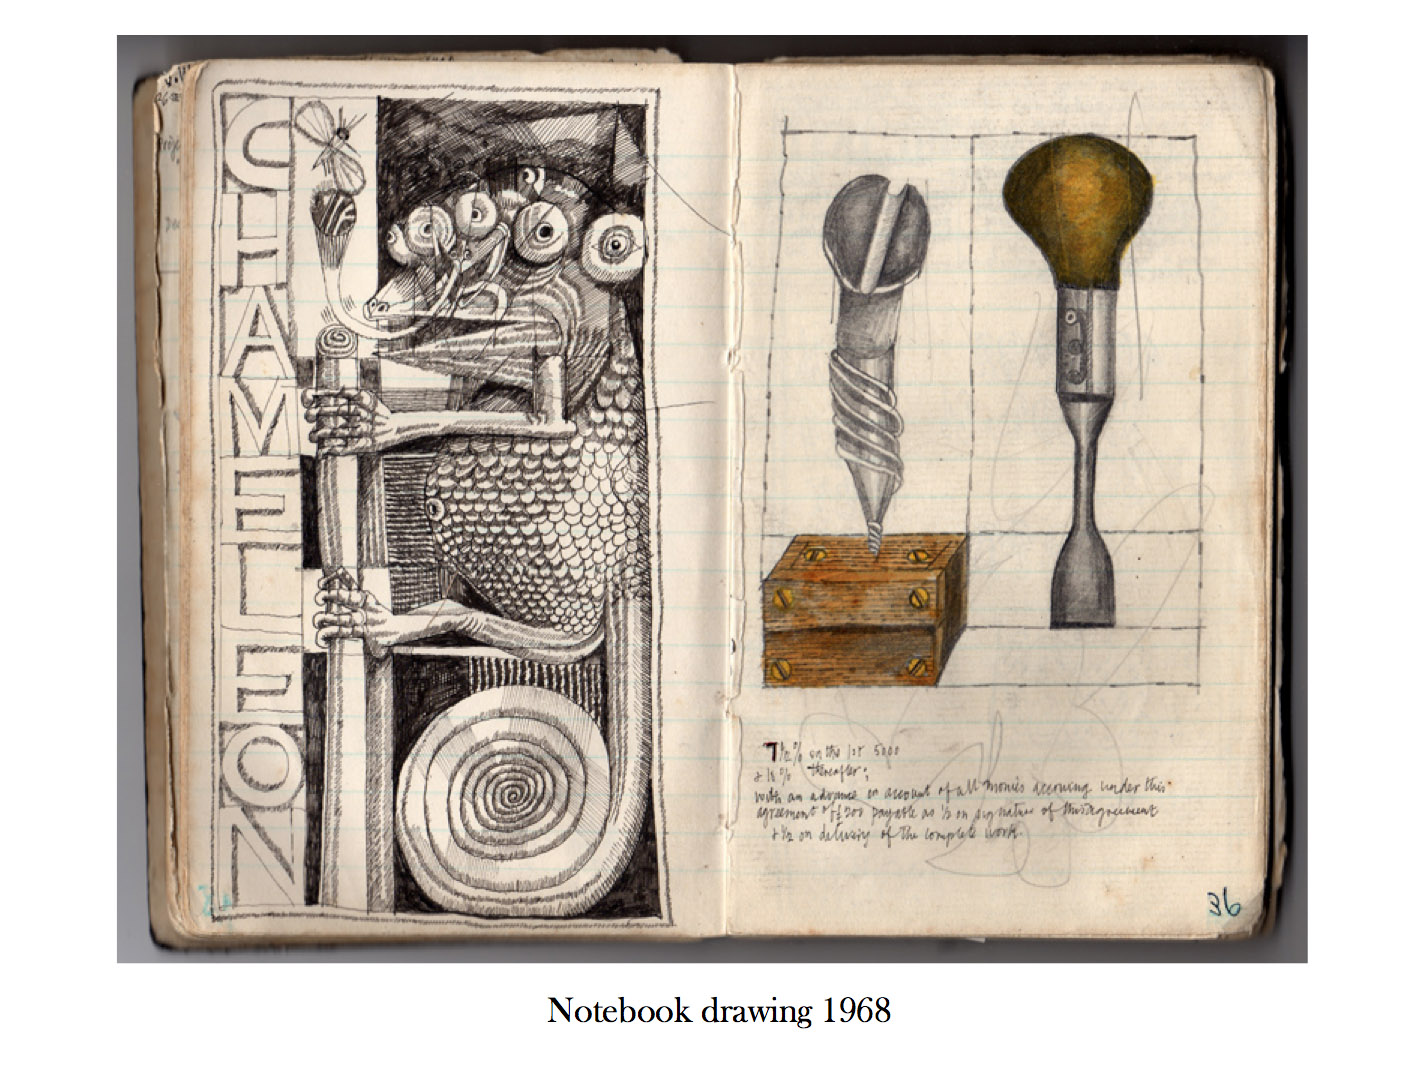 CHAMELEON
7½% on the 1st 5000
+ 10% thereafter;
with an advance on account of all monies accruing under this
agreement of £200 payable as ½ on signature of this agreement
+ ½ on delivery of the complete work.
36
Notebook drawing 1968